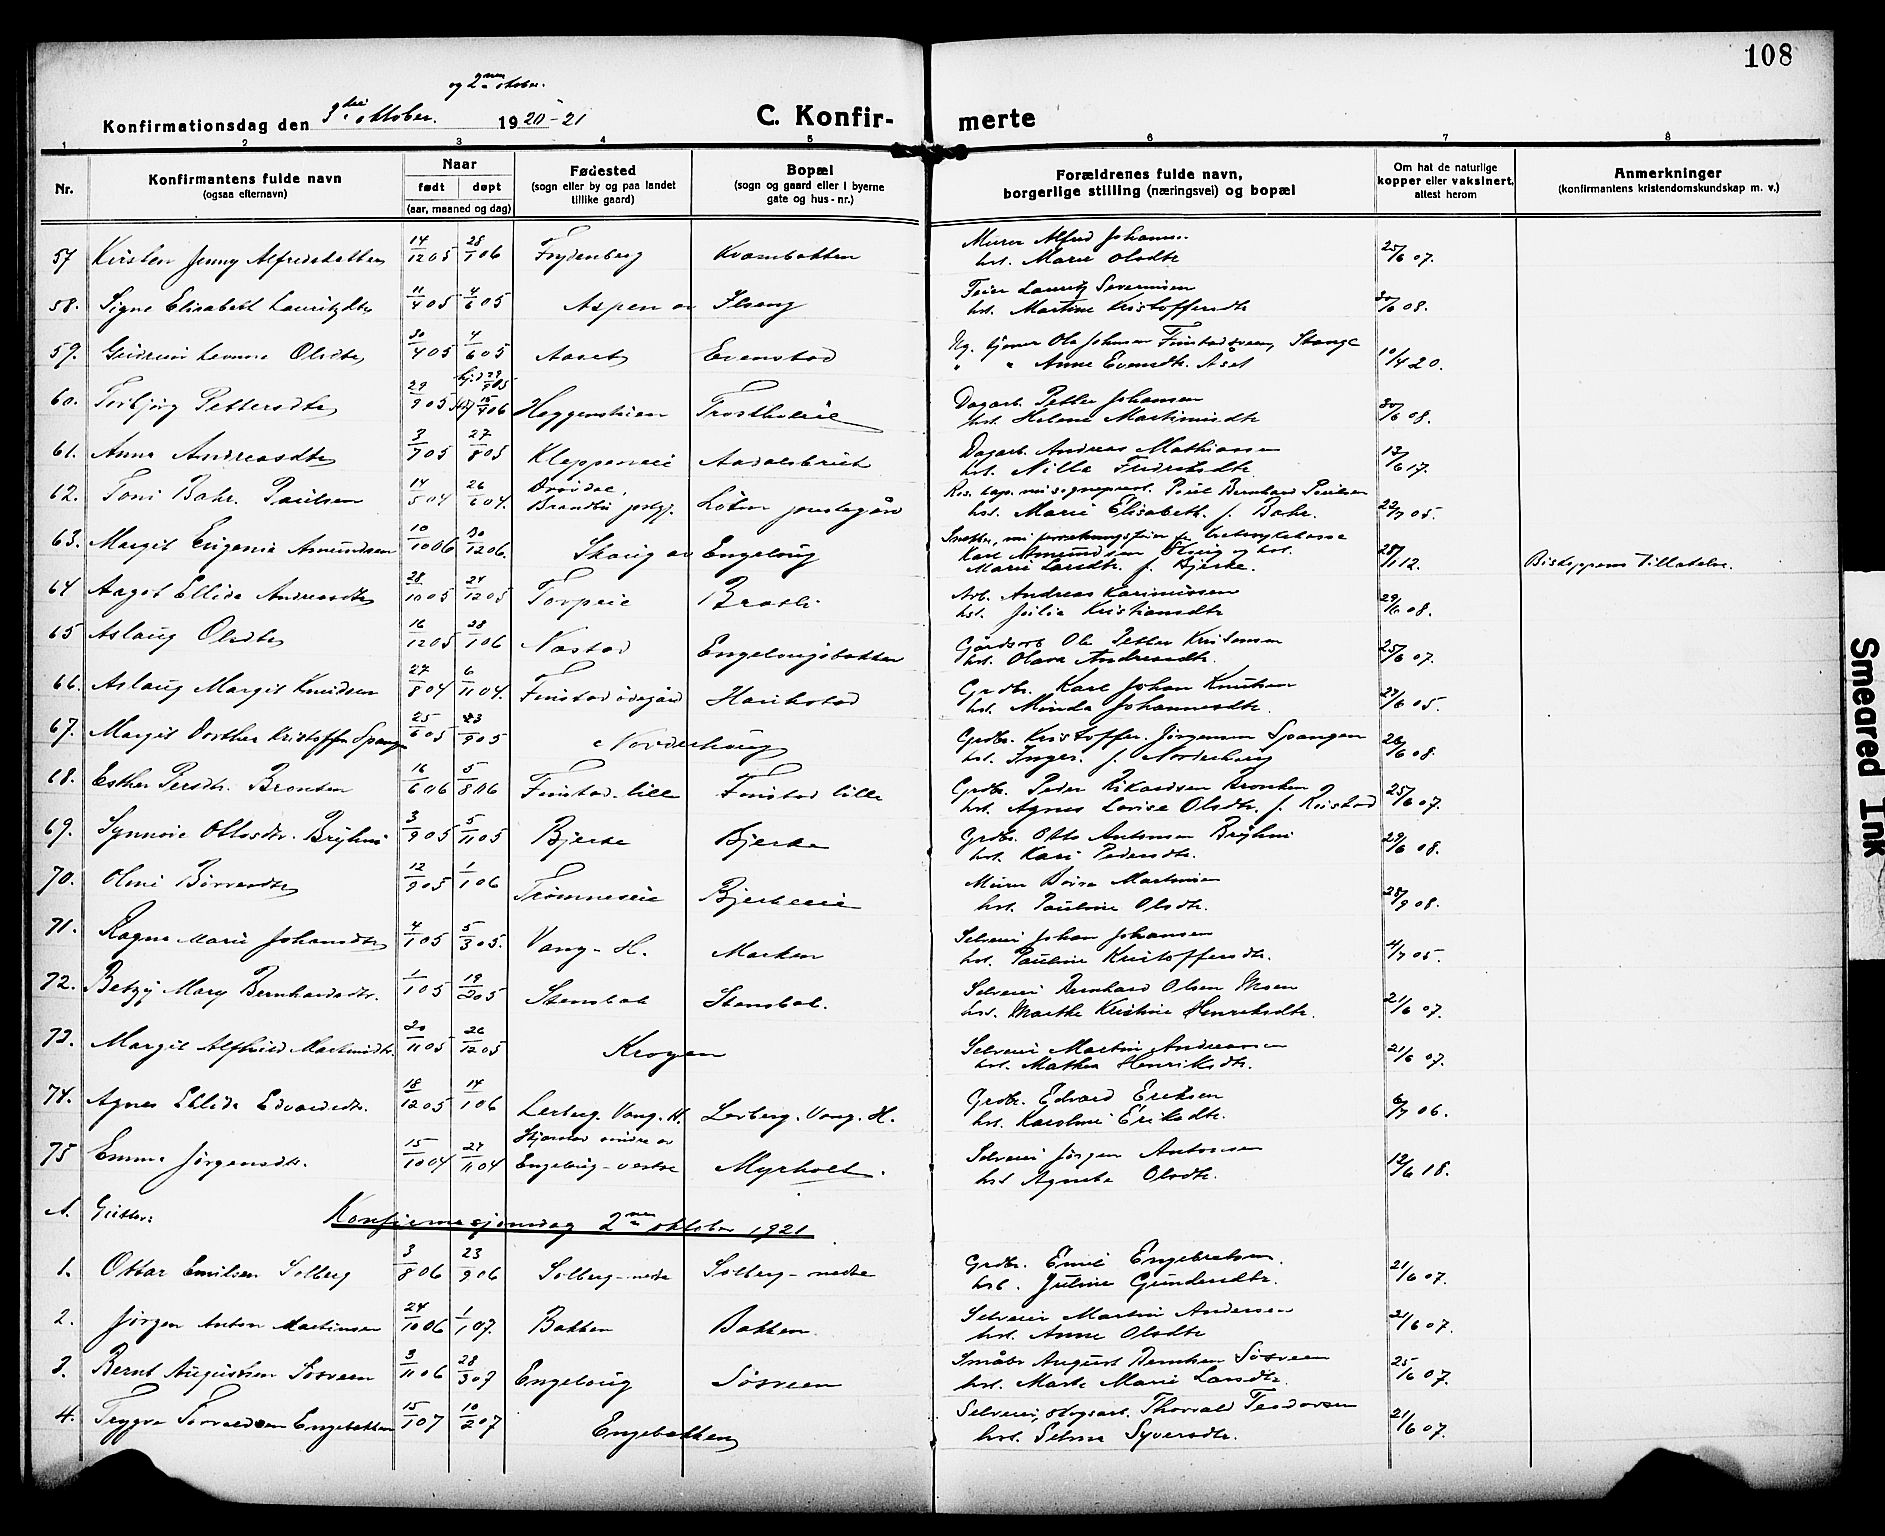 108
og 2nen oktober.
Konfirmationsdag den 3die oktober. 1920-21
C. Konfir- merte
1 2 3 4 5 6 7 8
Nr.
Konfirmantens fulde navn
(ogsaa efternavn)
Naar
født døpt
(aar, maaned og dag)
Fødested
(sogn eller by og paa landet
tillike gaard)
Bopæl
(sogn og gaard eller i byerne
gate og hus - nr.)
Forældrenes fulde navn,
borgerlige stilling (næringsvei) og bopæl
Om hat de naturlige
kopper eller vaksinert,
attest herom
Anmerkninger
(konfirmantens kristendomskundskap m. v.)
57 Kirsten Jenny Alfredsdatter 14/12 05 28/1 06 Frydenberg Kvernbakken Murer Alfred Johansen 25/6 07.
hst. Marie Olsdtr
58. Signe Elisabeth Lauritzdtr 11/4 05 4/6 05 Aspen av Ilseng Feier Lauritz Severinsen 30/6 08.
hst. Martine Kristoffersdtr
59. Gudrun Olsdtr 30/4 05 4/6 05 Aaset Evenstad Ug. tjener Ola Johnsen Finstadsveen, Stange 10/4 20.
" " Anne Evensdtr. Åset
60. Torbjørg Pettersdtr 29/9 05 29/9 05 15/4 06 Heggensteien Dagarb. Petter Johansen 30/6 08.
hst. Helene Martinusdtr
61. Anna Andreasdtr 3/7 05 27/8 05 Kleppeneie Aadalsbruk Dagarb. Andreas Mathiassen 17/6 17.
hst. Nille Fredriksdtr
62. Toni Bahr. Paulsen 14/5 04 26/6 04. Brandbu prstgj. Løten prestegård Res. kap. nu sogneprest. Paul Bernhard Paulsen 22/7 05.
hst. Marie Elisabeth f. Bahr.
63. Margit Eugenia Amundsen 10/10 06 30/12 06. Skaug av Engelaug 28/1 12. Biskoppens Tillatelse.
Karl Amundsen Skaug og hst.
Marie Larsdtr. f. Bjerke.
64 Aagot Ellida Andreasdtr 28/10 05 24/12 05 Torpeie Arb. Andreas Karinussen 29/6 08.
hst. Julie Kristiansdtr
65 Aslaug Olsdtr 16/12 05 28/1 06 Næstad Engelaugsbakken Gårdsarb Ole Petter Kristensen 25/6 07.
hst. Olava Andreasdtr.
66. Aslaug Margit Knudsen 27/8 04 6/11 04. Finstad ødegård Harikstad Grdbr. Karl Johan Knutsen 27/6 05.
hst. Minda Johannesdtr.
67. Margit Dorthea Kristoffn Spangen 25/6 05 23/9 05 Norderhaug Grdbr. Kristoffer Jørgensen Spangen 26/6 08.
hst. Inger f. Norderhaug
68. Esther Persdtr. Bronken 16/6 06 5/8 06 Finstad-lille Finstad lille Grdbr. Peder Rikardsen Bronken 25/6 07.
hst. Agnes Lovise Olsdtr. f. Reistad
69. Synnøve Ottosdtr. Bryhni 3/9 05 5/11 05 Bjerke Bjerke Grdbr. Otto Antonsen Bryhni 29/6 08.
hst. Kari Pedersdtr.
70. Olmi Børresdtr 12/9 05 1/1 06 Trømneseie Bjerkeeie Murer Børre Martinsen 28/9 08.
hst. Pauline Olsdtr.
71. Ragna Marie Johansdtr 4/1 05 5/3 05. Vang-H. Marken Selveier Johan Johansen 4/7 05.
hst. Pauline Kristoffersdtr.
72. Betzy Mary Bernhardsdtr. 1/1 05 19/2 05 Stensbak Stensbak. Selveier Bernhard Olsen Moen 21/6 07.
hst. Marthe Kristine Henriksdtr.
73. Margit Alfhild Martinsdtr. 20/11 05 26/12 05 Krogen Selveier Martin Andreassen 21/6 07.
hst. Mathea Henriksdtr.
74. Agnes Ellida Edvardsdtr. 18/12 05 14/1 06 Lerberg. Vang. H. Lerberg. Vang. H. Grdbr. Edvard Eriksen 6/7 06.
hst. Karoline Eriksdtr.
75 Emma Jørgensdtr. 15/10 04 27/11 04 Stjørstad nordre av
Engelaug-vestre Myrholt. Selveier Jørgen Antonsen 12/6 18.
hst Agnete Olsdtr.
A. Gutter: Konfirmasjonsdag 2nen oktober 1921.
1. Ottar Emilsen Solberg 3/8 06 23/9 06 Solberg-nedre Solberg-nedre Grdbr. Emil Engebretsen 21/6 07.
hst. Juline Gundersdtr.
2. Jørgen Anton Martinsen 24/10 06 1/1 07. Bakken Bakken. Selveier Martin Andersen 21/6 07.
hst. Anne Olsdtr
3. Bernt Augustsen Søsveen 3/11 06 28/3 07 Engelaug Søsveen Småbr August Berntsen Søsveen 25/6 07.
hst. Marte Marie Larsdtr.
4. Trygve Torvaldsen Engebakken 15/1 07 10/2 07 Engebakken Selveier, skogsarb. Thorvald Teodorsen 21/6 07.
hst. Selma Syversdtr.
Smeared Ink